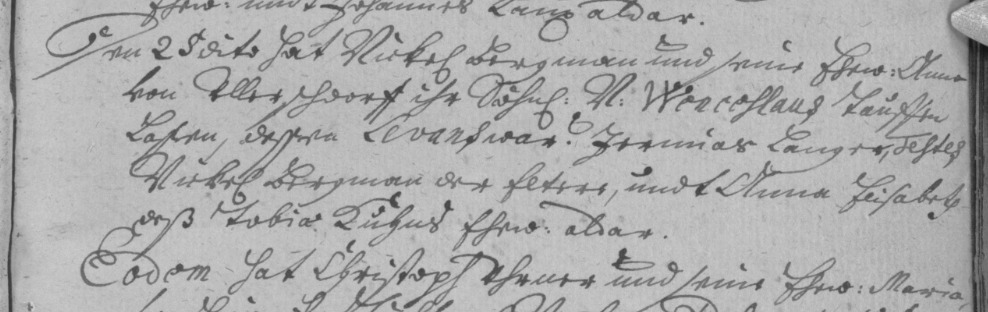 Ehew: undt Johannes Lang aldar.
Den 28 dito hat Nickel Bergman und seine Ehew: Anna
von Ullerschdorff ihr Söhnl: N: Wenceslaus tauffen
Laßen, dessen Levans war: Jermias Langer, testes
Nickel Bergman der Eltere, undt Anna Elisabeth
deß Tobia Kuhns Ehew: aldar.
Eodem hat Christoph und seine Ehew: Maria